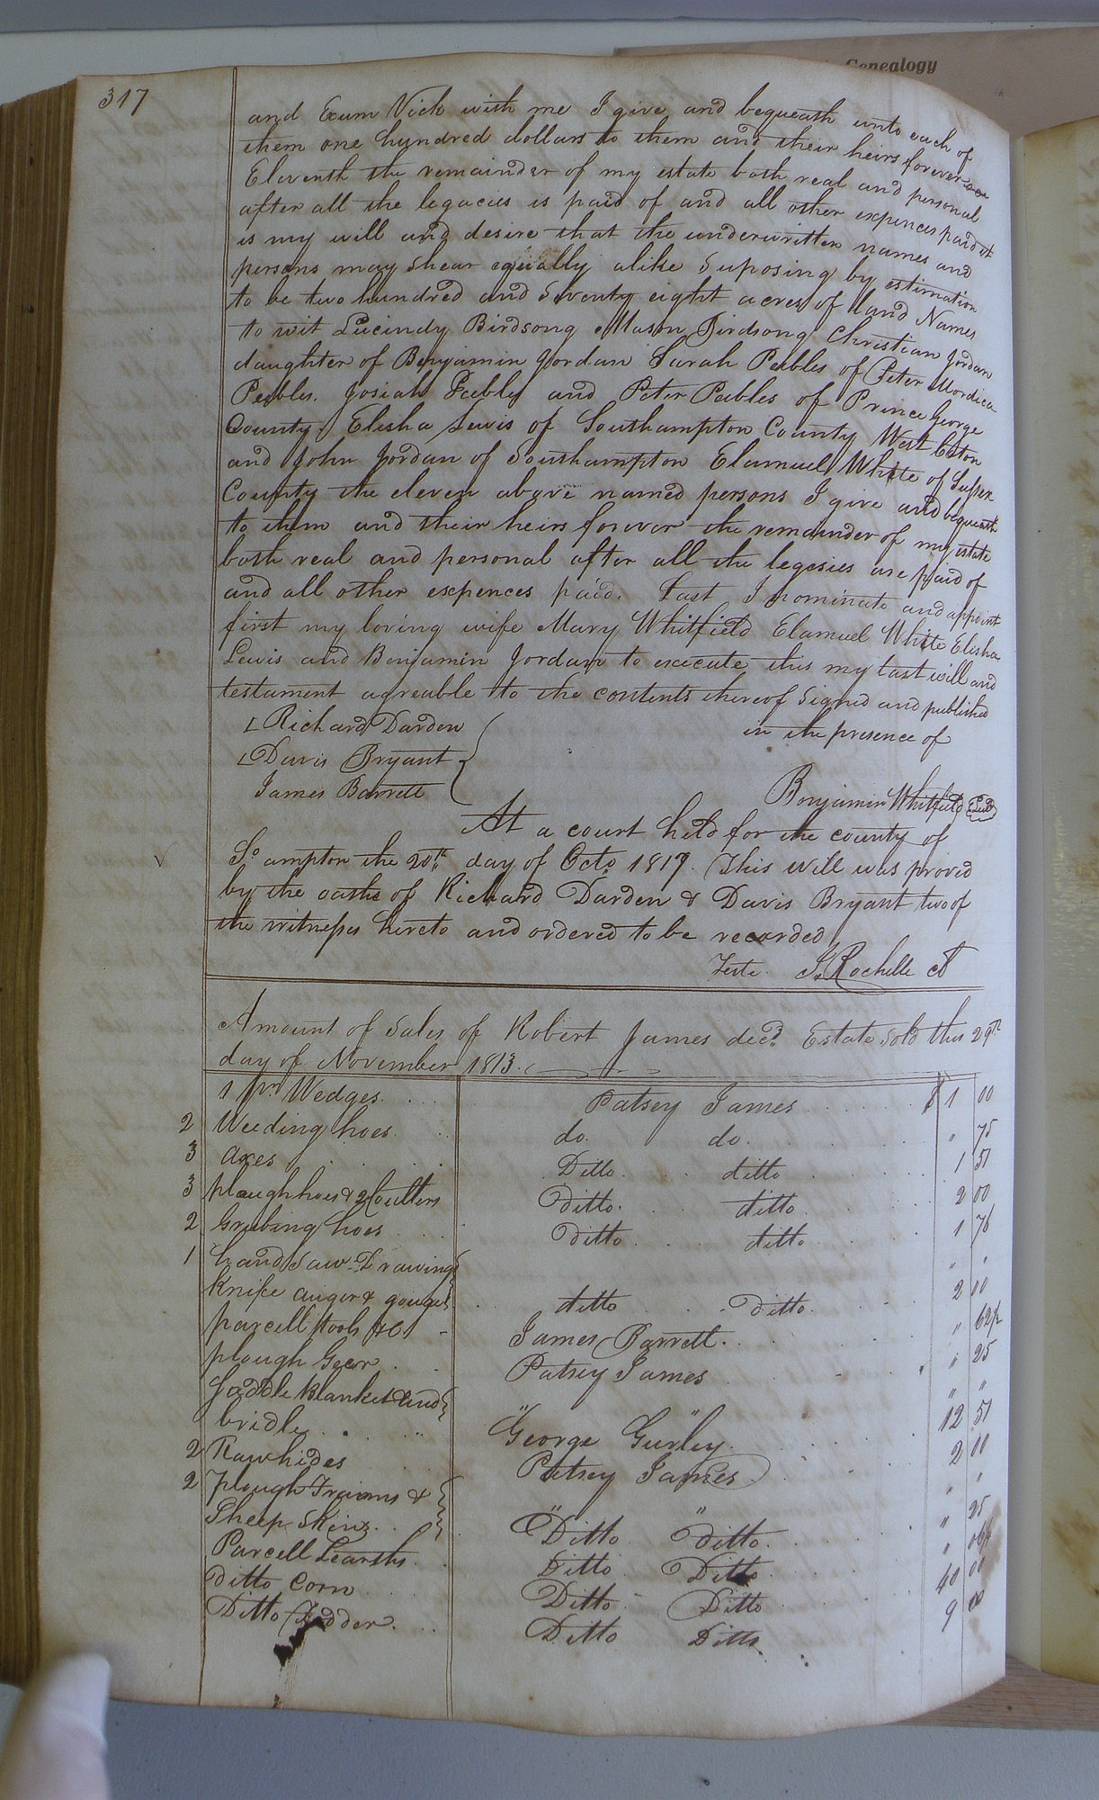 Genealogy
317
and Exum Vick with me I give and bequeath unto each of
them one hundred dollars to them and their heirs forever
Eleventh the remainder of my estate both real and personal
after all the legacies is paid of and all other expences paid it
is my will and desire that the underwritten names and
persons may shear equally alike Suposing by estimation
to be two hundred and Seventy eight acres of land Names
to wit Lucindy Birdsong Mason Birdsong Christian Jordan
daughter of Benjamin Jordan Sarah Peebles of Peter Mordica
Peebles. Josiah Peebles and Peter Peebles of Prince George
County. Elisha Lewis of Southampton County West
and John Jordan of Southampton Elamuel White of Sussex
County the eleven above named persons I give and bequeath
to them and their heirs forever the remainder of my estate
both real and personal after all the legesies are paid of
and all other expences paid. Last I nominate and appoint
first my loving wife Mary Whitfield Elamuel White Elisha
Lewis and Benjamin Jordan to execute this my last will and
testament agreable to the contents thereof Signed and published
in the presence of
Richard Darden
Davis Bryant
James Barrett
Benjamin Whitfield Seal
At a court held for the county of
So ampton the 20th day of Octo 1817. This will was proved
by the oaths of Richard Darden & Davis Bryant two of
the witnesses hereto and ordered to be recorded
Teste. J. Rochelle Ct
Amount of Sales of Robert James decd. Estate Sold this 29th
day of November 1813.
1 pr. Wedges Patsey James $ 1 00
2 Weeding hoes do. do. " 75
3 axes Ditto ditto 1 51
3 ploughhoes & 2 Coulters Ditto. ditto 2 00
2 Grubing hoes Ditto ditto 1 76
1 hand Saw Drawing " "
Knife auger & gouge ditto Ditto. 2 00
parcell tools &C James Barrett. " 62½
plough Gear Patsey James " 25
Saddle Blanket and " "
bridle George Gurley 12 51
2 Rawhides Patsey James 2 00
2 plough & " "
Sheep Skins Ditto ditto. " 25
Parcell Ditto Ditto "
Ditto Corn Ditto Ditto 40 00
Ditto Fodder. Ditto Ditto 9 00